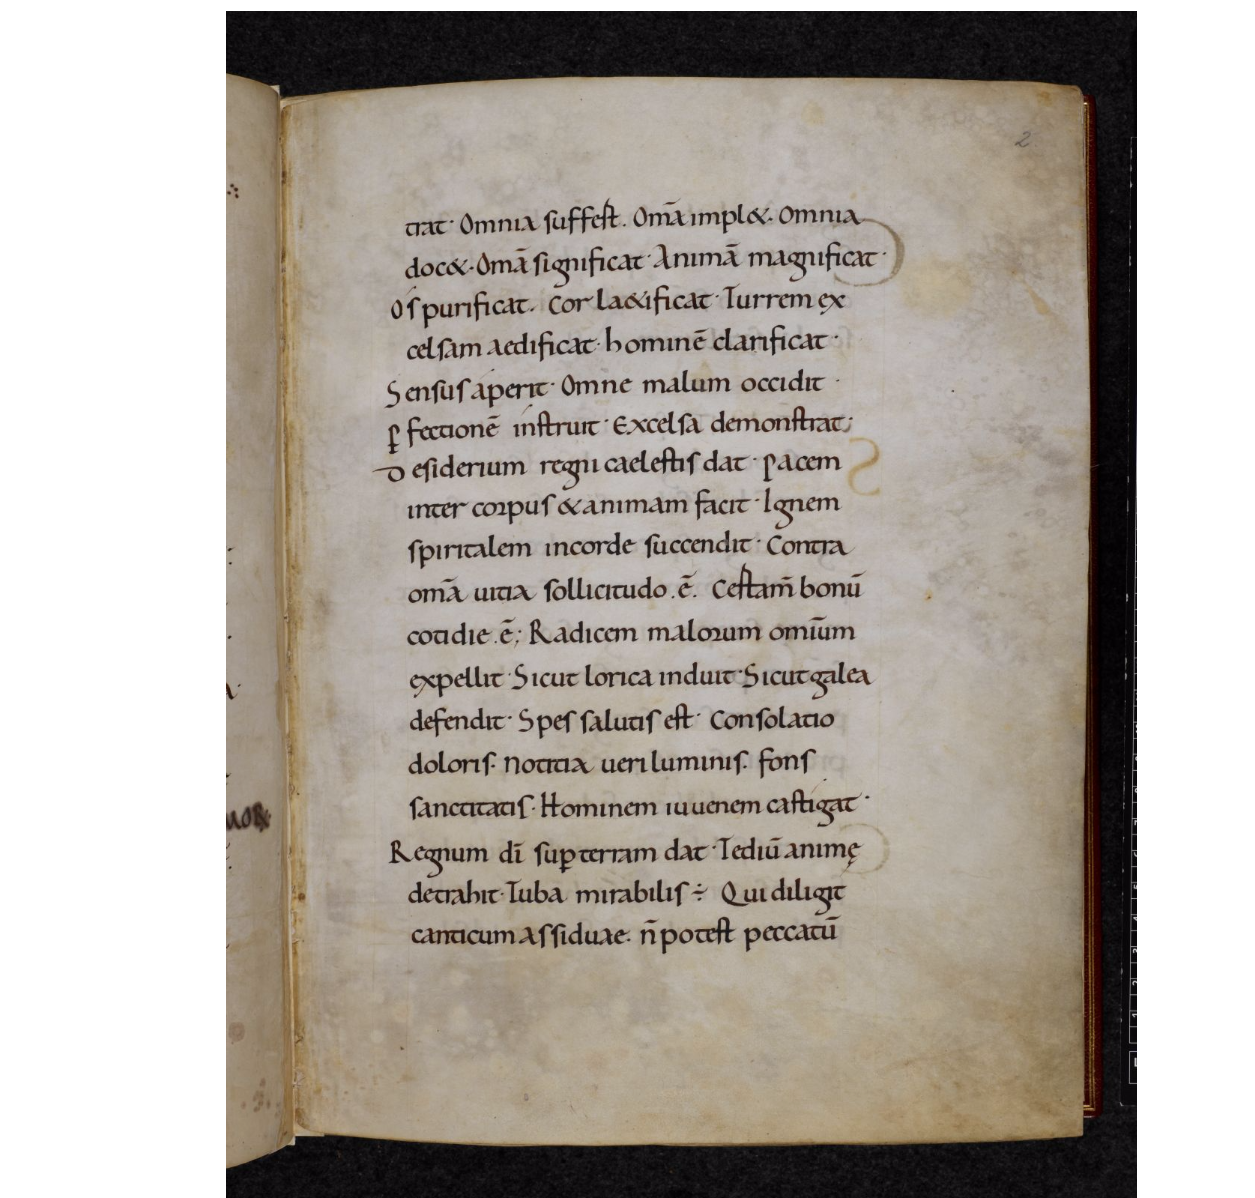 2
trat· Omnia suffert. Om̅a impl&. Omnia
doc&. Om̅a significat· Animā magnificat·
Os purificat. Cor la&ificat· Turrem ex
celsam aedificat· hominē clarificat·
Sensus aperit· Omne malum occidit·
ꝑfectionē instruit· Excelsa demonstrat;
Desiderium regni caelestis dat· Pacem
inter corpus & animam facit· Ignem
spiritalem incorde succendit· Contra
om̅a uitia sollicitudo .ē. Cestam̅ bonū
cotidie .ē; Radicem malorum omīum
expellit· Sicut lorica induit· Sicut galea
defendit· Spes salutis est· Consolatio
doloris. Notitia ueri luminis. fons
sanctitatis. Hominem iuuenem castigat·
Regnum dī suꝑ terram dat· Tediū animę
detrahit· Tuba mirabilis ÷ Qui diligit
canticum assiduae. n̅ potest peccatū